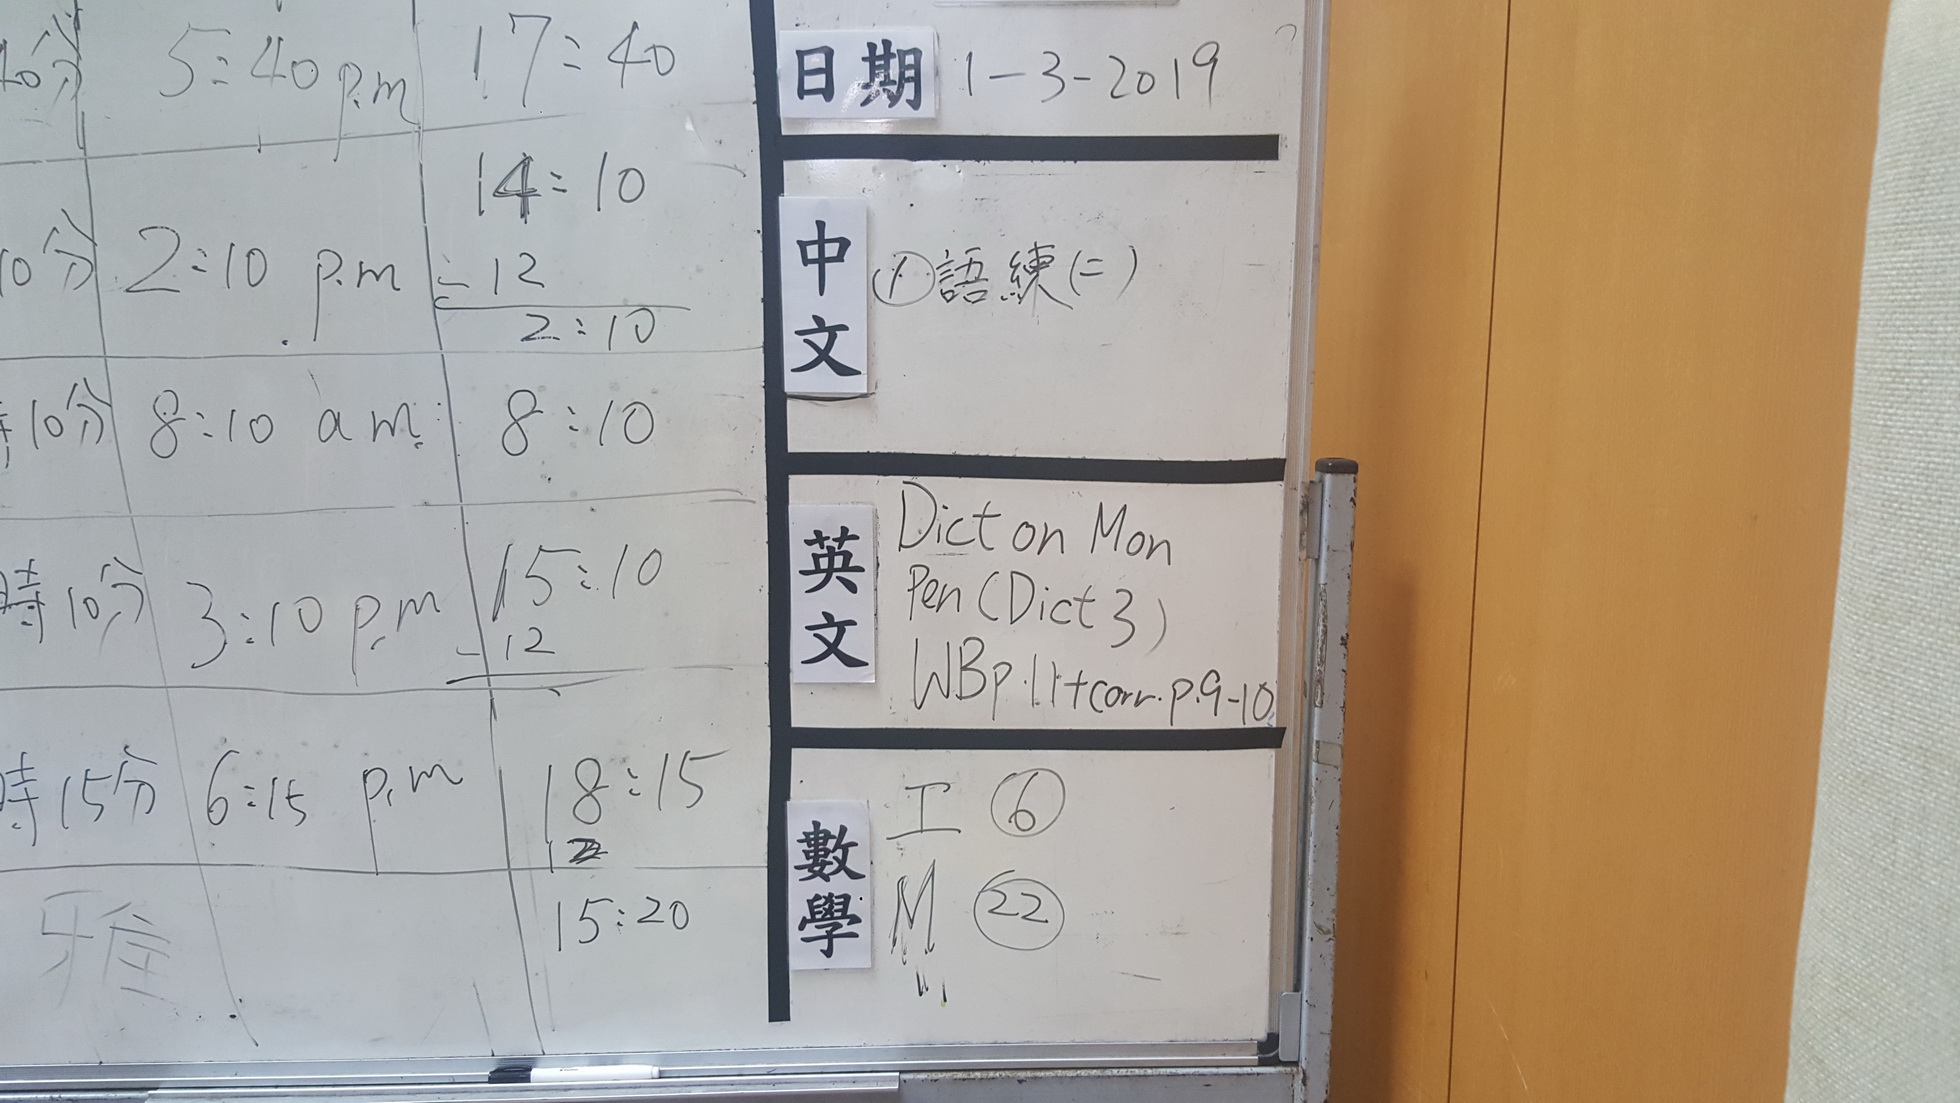 40分 5:40 p.m 17:40
14:10
10分 2:10 p.m - 12
2:10
時10分 8:10 a.m. 8:10
時10分 3:10 p.m 15:10
- 12
時15分 6:15 p.m 18:15
12
雅 15:20
日期 1-3-2019
中文 ①語練(二)
英文 Dict on Mon
Pen (Dict 3)
WB p.11+corr. p.9-10
數學 工 ⑥
M ㉒